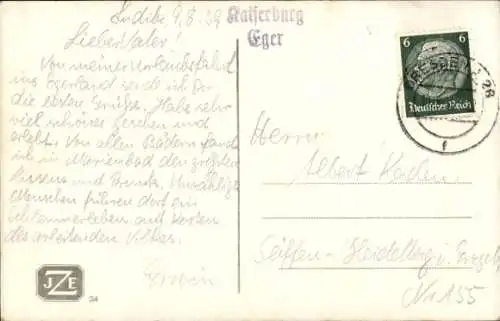 9.8.39
Kaiserburg
Eger
Lieber Vater!
Von meiner Urlaubsfahrt
ins Egerland sende ich Dir
die besten Grüße. Habe sehr
viel schönes gesehen und
erlebt. Von allen Bädern fand
ich in Marienbad den größten
Luxus und Prunk. Unzählige
Menschen führen dort ein
Schlemmerleben auf Kosten
des arbeitenden Volkes.
Erwin
6 6
Deutsches Reich
DRESDEN
f
Herrn
Albert Kaden
Seiffen-Heidelberg i. Erzgeb.
Nr. A55
JZE
34